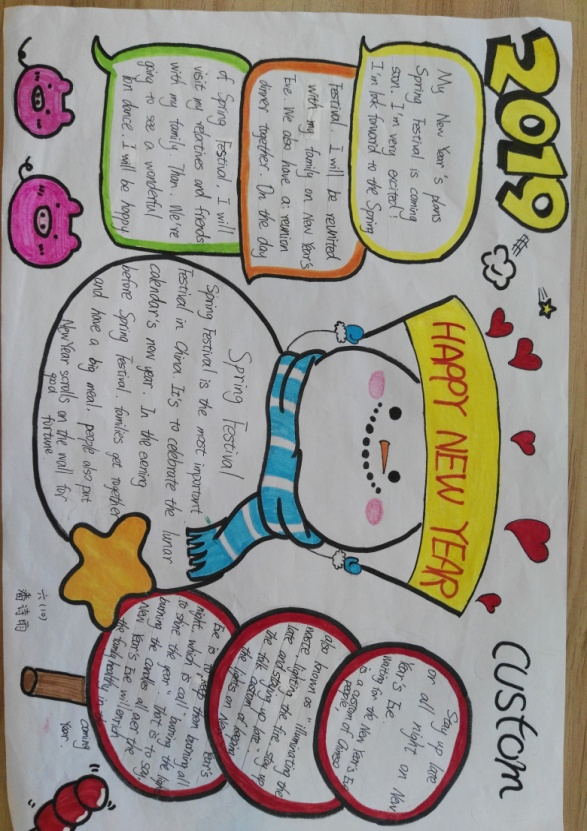 2019
HAPPY NEW YEAR
My New Year's plans
Spring Festival is coming
soon. I'm very excited!
I'm look forward to the Spring
Festival. I will be reunited
with my family on New Year's
Eve. We also have a reunion
dinner together. On the day
of Spring Festival. I will
visit my relatives and friends
with my family. Than. We're
going to see a wonderful
lion dance. I will be happy
Spring Festival
Spring Festival is the most important
Festival in China. It's to celebrate the lunar
calendar's new year. In the evening
before Spring Festival. families get together
and have a big meal. people also put
New Year scrolls on the wall for
good
fortune.
custom
Stay up late
or all night on New
Year's Eve
Waiting for the New Year's Eve
is a custom of Chinese
people
also known as "illuminating the
lighting the fire, stay up
late and staying up
the custom of
the lights on New
Year's
Eve is to than burning all
night, which is call burning the
to shine the year. That is to say,
burning the candles all over the
New Year's Eve will enrich
the family in the
coming
Year.
六(10)